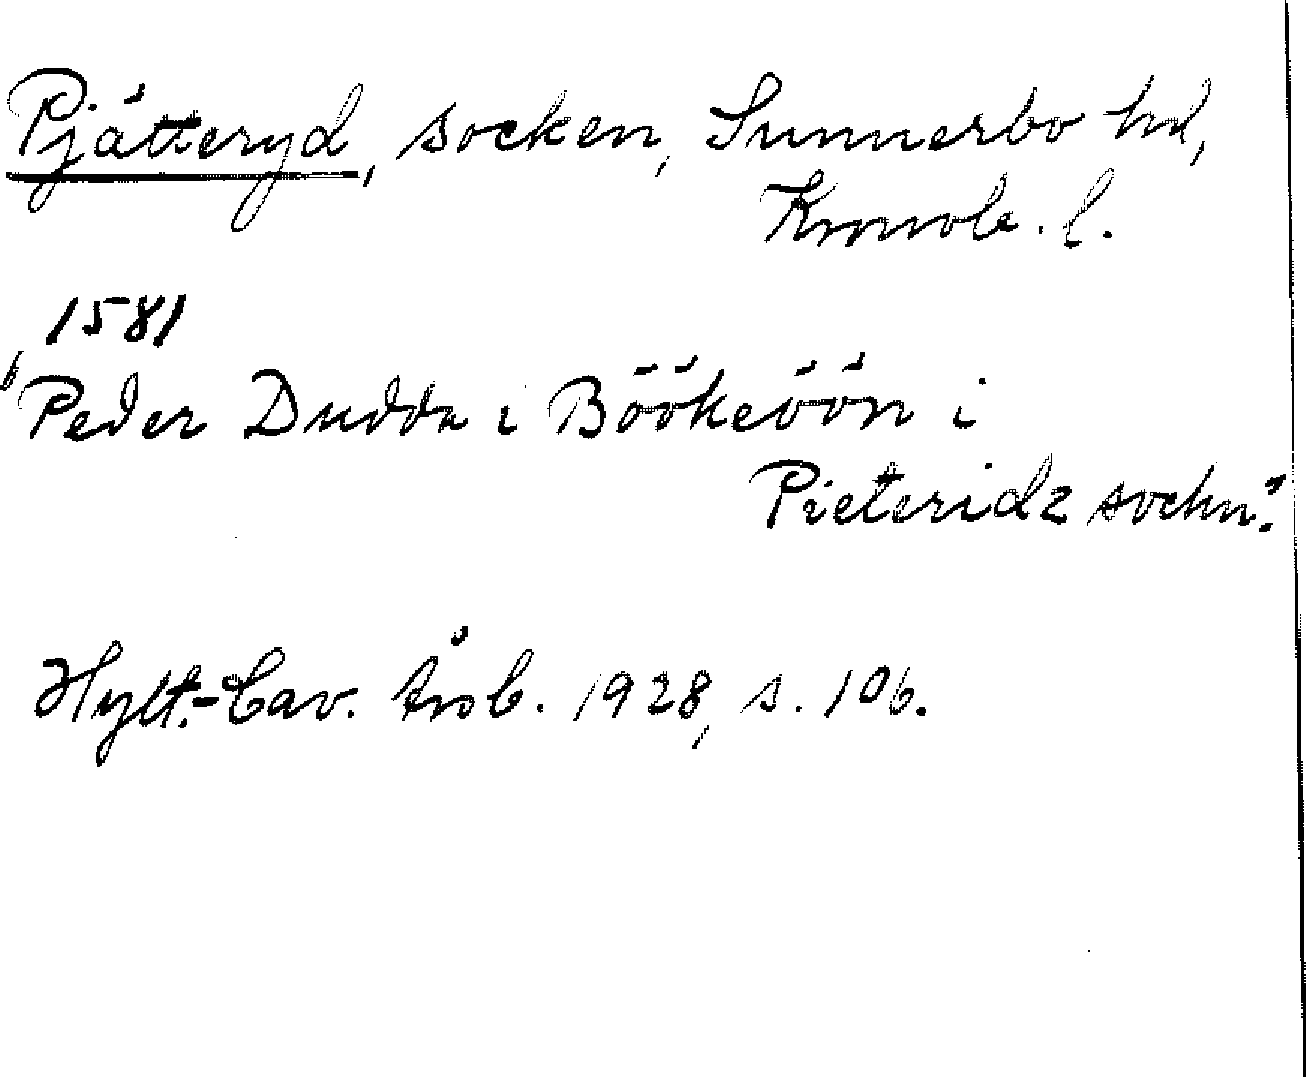 Pjätteryd, socken, Sunnerbo hd,
Kronob. l.
1581
"Peder Dudda i Böökeöön i
Pieteridz sochn".
Hylt.-Cav. Årsb. 1928, s. 106.